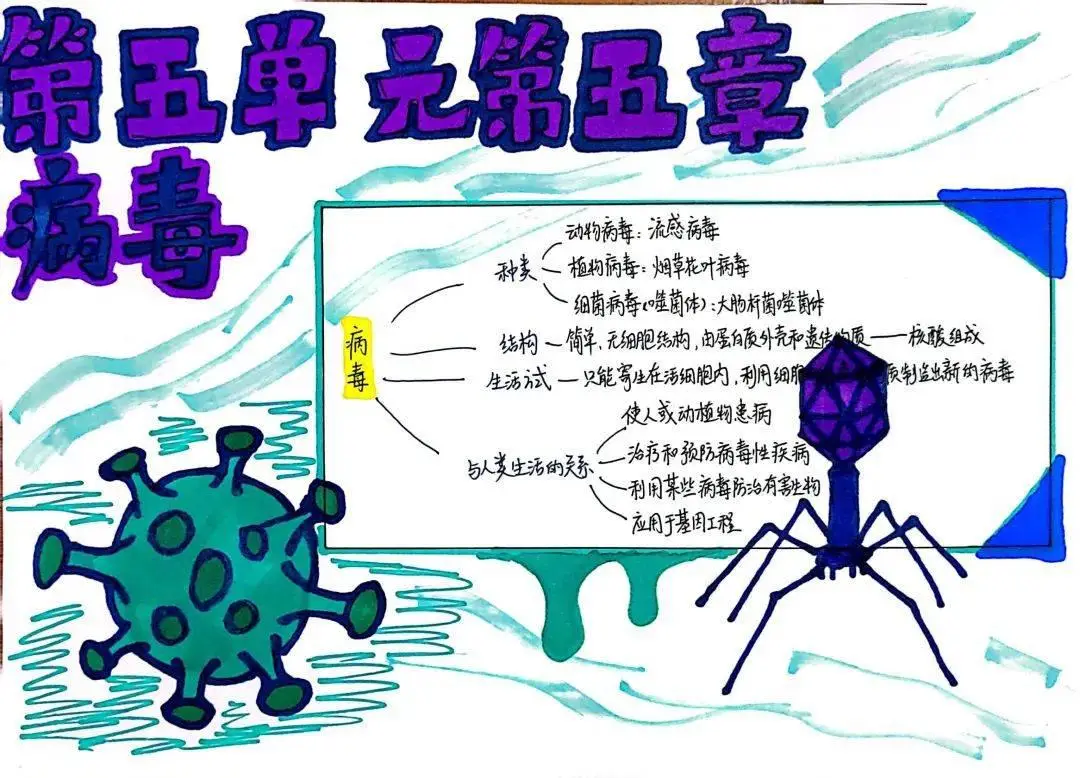 第五单元第五章
病毒
病毒
种类
动物病毒：流感病毒
植物病毒：烟草花叶病毒
细菌病毒（噬菌体）：大肠杆菌噬菌体
结构 — 简单，无细胞结构，由蛋白质外壳和遗传物质 — 核酸组成
生活试 — 只能寄生在活细胞内，利用细胞 质制造出新的病毒
与人类生活的关系
使人或动植物患病
治疗和预防病毒性疾病
利用某些病毒防治有害生物
应用于基因工程